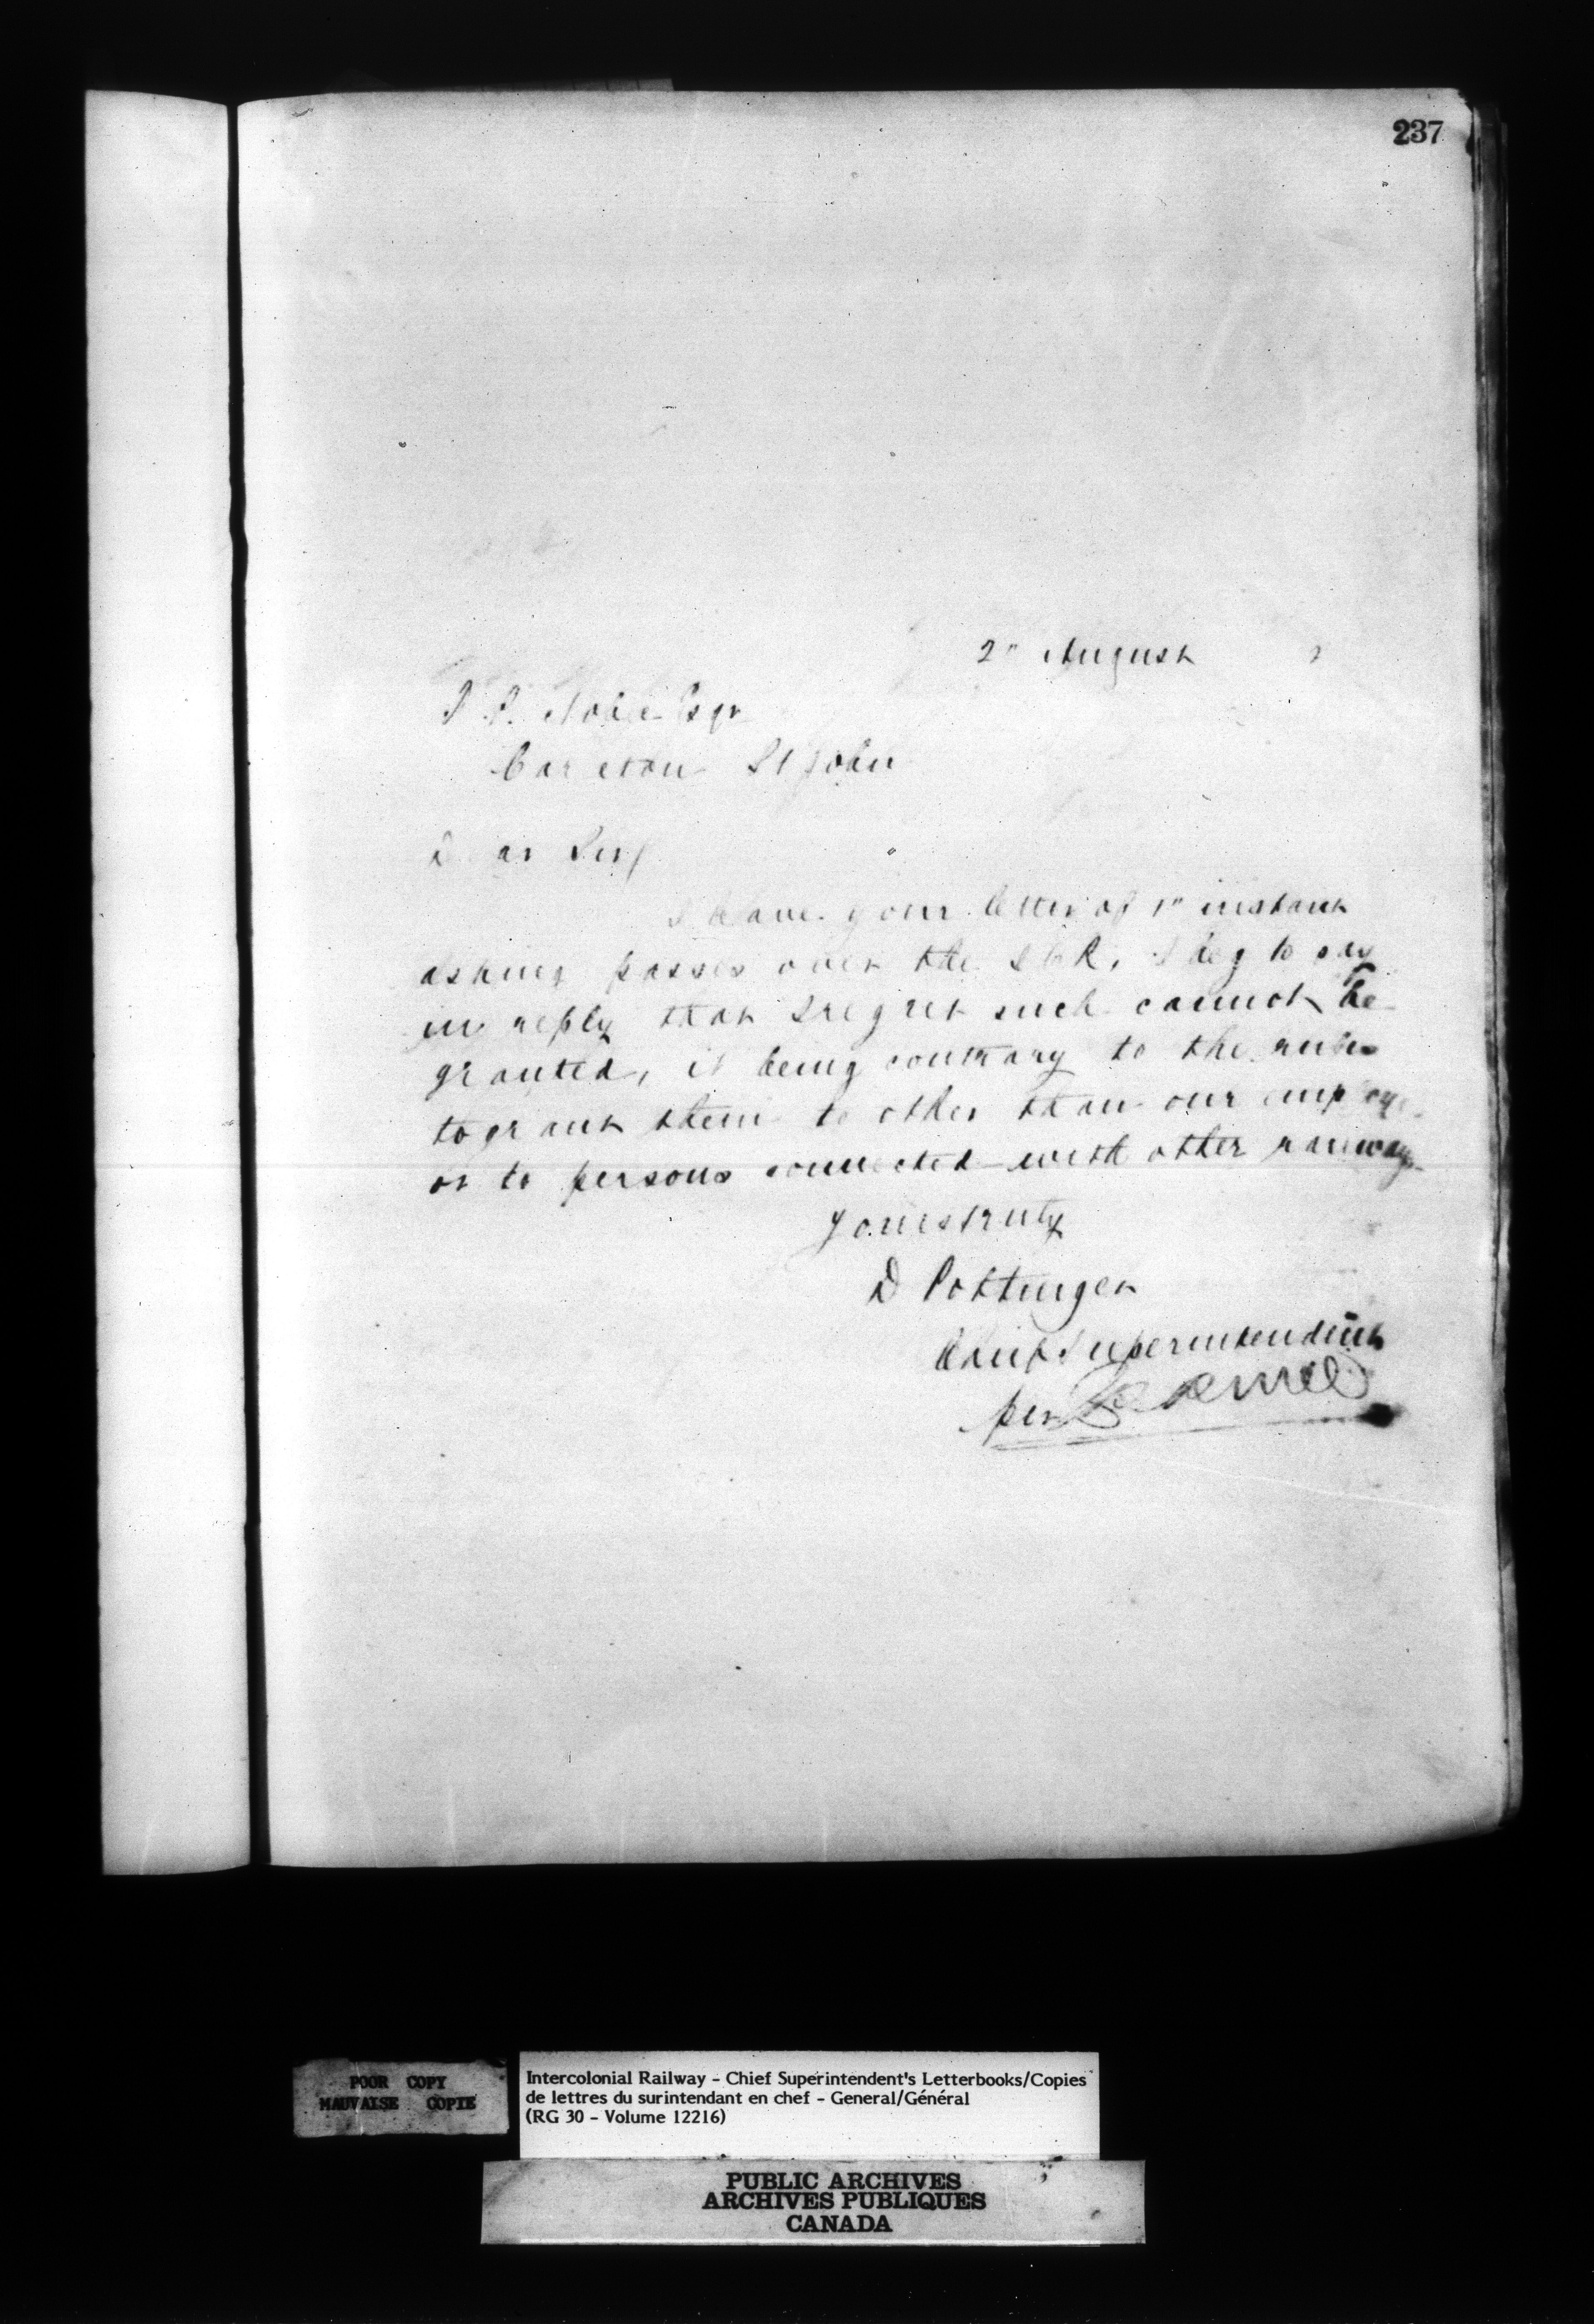 237
2" August
Esqr
Carleton St John
Dear Sir/
I have your letter of 1" instant
asking passes over the I C R, I beg to say
in reply that I regret such cannot be
granted, it being contrary to the rules
to grant them to other than our employes
or to persons connected with other railways
Yours truly
D Pottinger
Chief Superintendent
per
POOR COPY
MAUVAISE COPIE
Intercolonial Railway - Chief Superintendent's Letterbooks/Copies
de lettres du surintendant en chef - General/Général
(RG 30 - Volume 12216)
PUBLIC ARCHIVES
ARCHIVES PUBLIQUES
CANADA